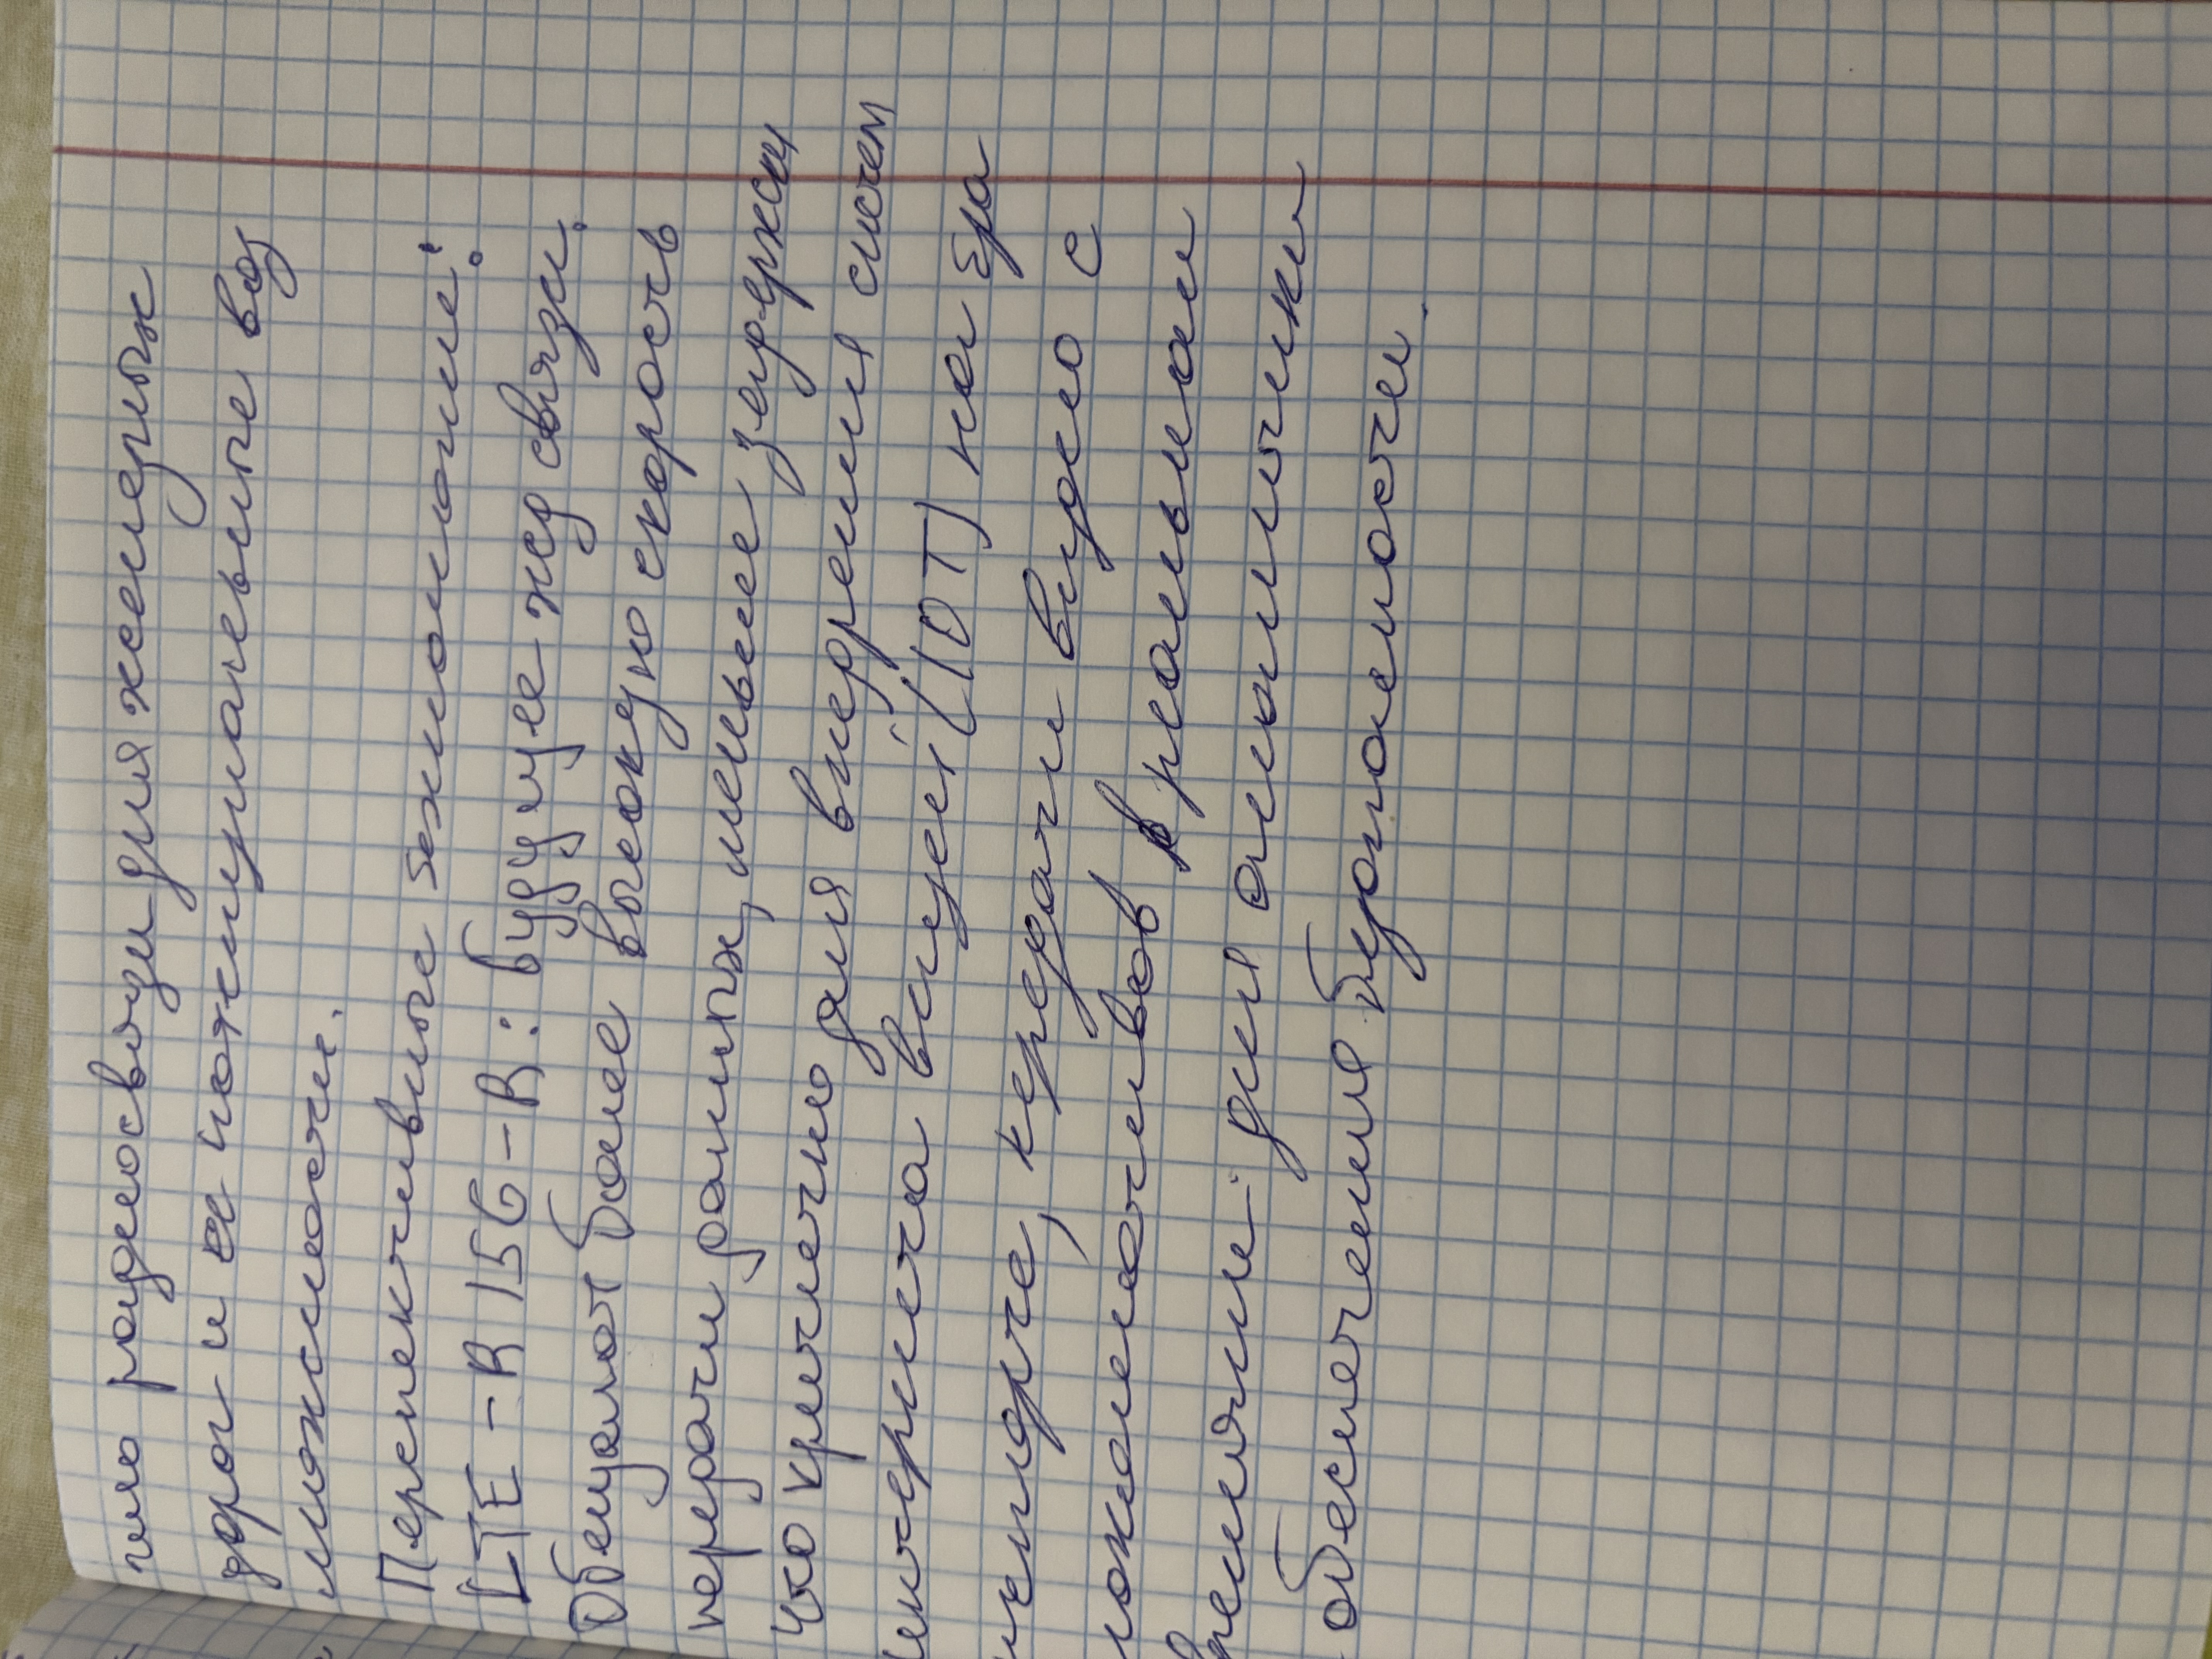 гию радиосвязи для железных
дорог и ее потенциальные воз
можности.
Перспективные технологии:
LTE-R 15G-R: будущее жд связи.
Обещают более высокую скорость
передачи данных, меньшее задержки
что критично для внедрения систем
интернета вещей (IOT) на тра
нспорте, передачи видео с
локомотивов в реальном
времени для аналитики
обеспечения безопасности.